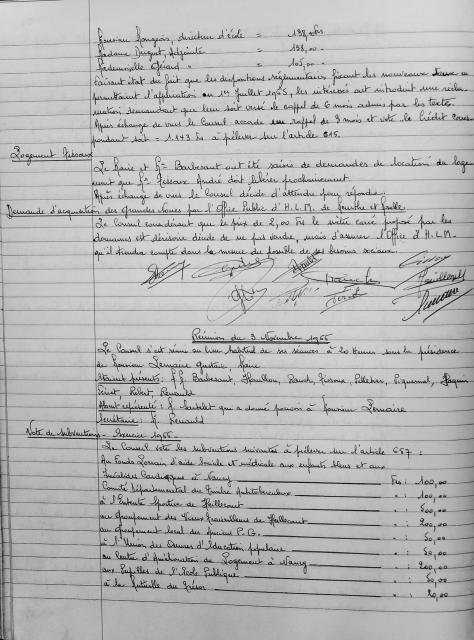 Monsieur Mougeois, directeur d'école = 198,00 Frs
Madame Duguet, Adjointe = 198,00
Mademoiselle Gérard " = 105,00
Faisant état du fait que les dispositions réglementaires fixant les nouveaux taux en
permettaient l'application au 1er Juillet 1965, les intéressés ont introduit une récla
mation demandant que leur soit versé le rappel de 6 mois admis par les textes.
Après échange de vues le Conseil accorde un rappel de 3 mois et vote le crédit corres
pondant soit = 1.143 Frs à prélever sur l'article 615.
Logement Fissaux
Le Maire et Mr Barbesant ont été saisis de demandes de location du loge
ment que Mr Fissaux André doit libérer prochainement
Après échange de vues le Conseil décide d'attendre pour répondre.
Demande d'acquisition des Grandes Noues par l'Office Public d'H.L.M. de Meurthe et Moselle
Le Conseil considérant que le prix de 2,00 Frs le mètre carré proposé par les
domaines est dérisoire décide de ne pas vendre, mais d'assurer l'Office d'H.L.M.
qu'il tiendra compte dans la mesure du possible de ses besoins sociaux.
Réunion du 3 Novembre 1966
Le Conseil s'est réuni au lieu habituel de ses séances à 20 Heures sous la présidence
de Monsieur Lemaire Gustave, Maire
Étaient présents: M.M. Barbesant, Houillon, Fissaux, Pelletier, Piquesnal,
Robert, Renauld
Absent représenté: M. qui a donné pouvoir à Monsieur Lemaire
Secrétaire: M. Renauld
Vote de subventions - Exercice 1966
Le Conseil vote les subventions suivantes à prélever sur l'article 657 :
Au Fonds Lorrain d'aide Sociale et médicale aux enfants bleus et aux
Invalides Cardiaques à Nancy Frs : 100,00
Comité Départemental du Timbre Antituberculeux " : 100,00
à l'Entente Sportive de Heillecourt " : 500,00
au Groupement des Vieux Travailleurs de Heillecourt " : 200,00
au Groupement local des Anciens P.G. " : 50,00
à l'Union des Œuvres d'Éducation populaire " : 50,00
au Centre d'Amélioration du Logement à Nancy " : 200,00
aux Pupilles de l'École Publique " : 50,00
à la Pupille du " : 20,00